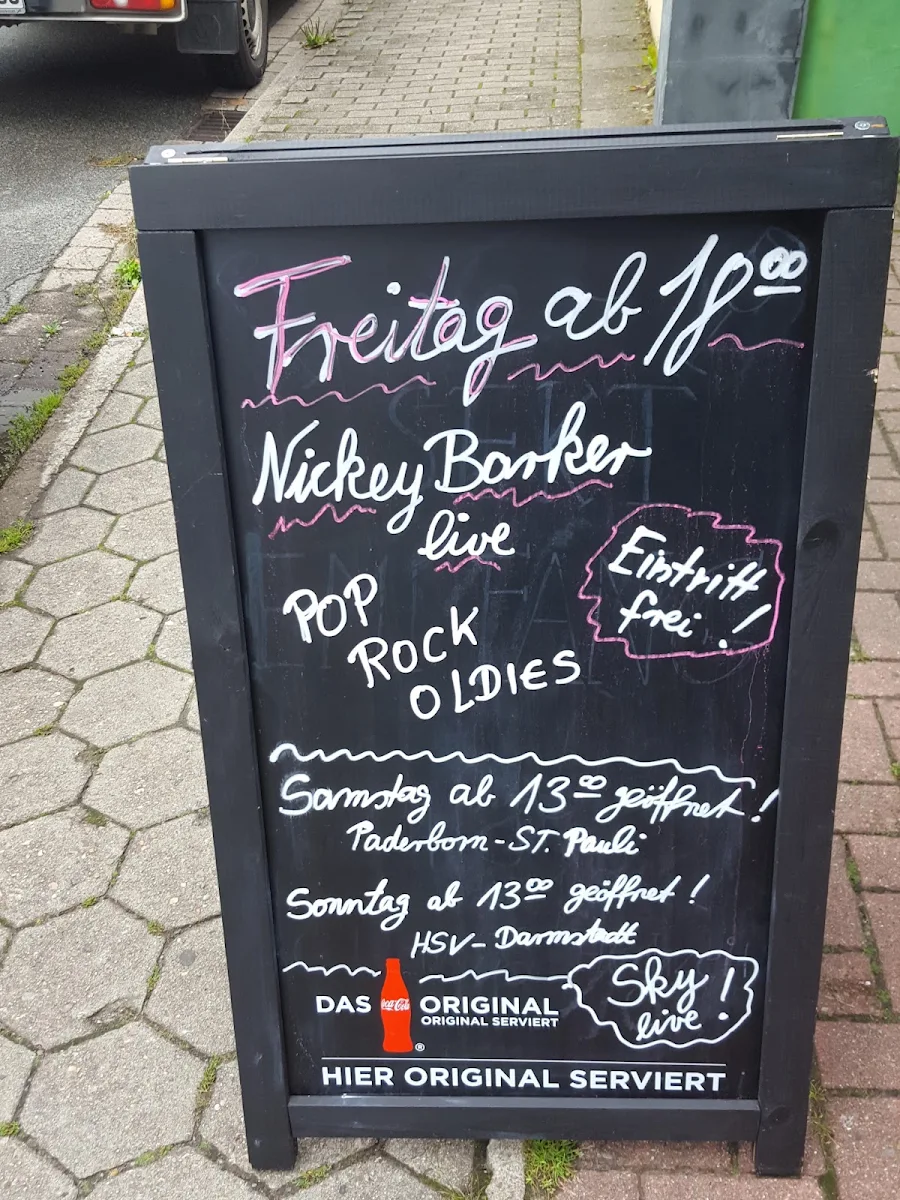 Freitag ab 18⁰⁰
Nickey Barker
live
POP
ROCK
OLDIES
Eintritt
frei !
Samstag ab 13⁰⁰ geöffnet !
Paderborn - ST. Pauli
Sonntag ab 13⁰⁰ geöffnet !
HSV - Darmstadt
Sky !
live
DAS Coca-Cola ORIGINAL
ORIGINAL SERVIERT
HIER ORIGINAL SERVIERT